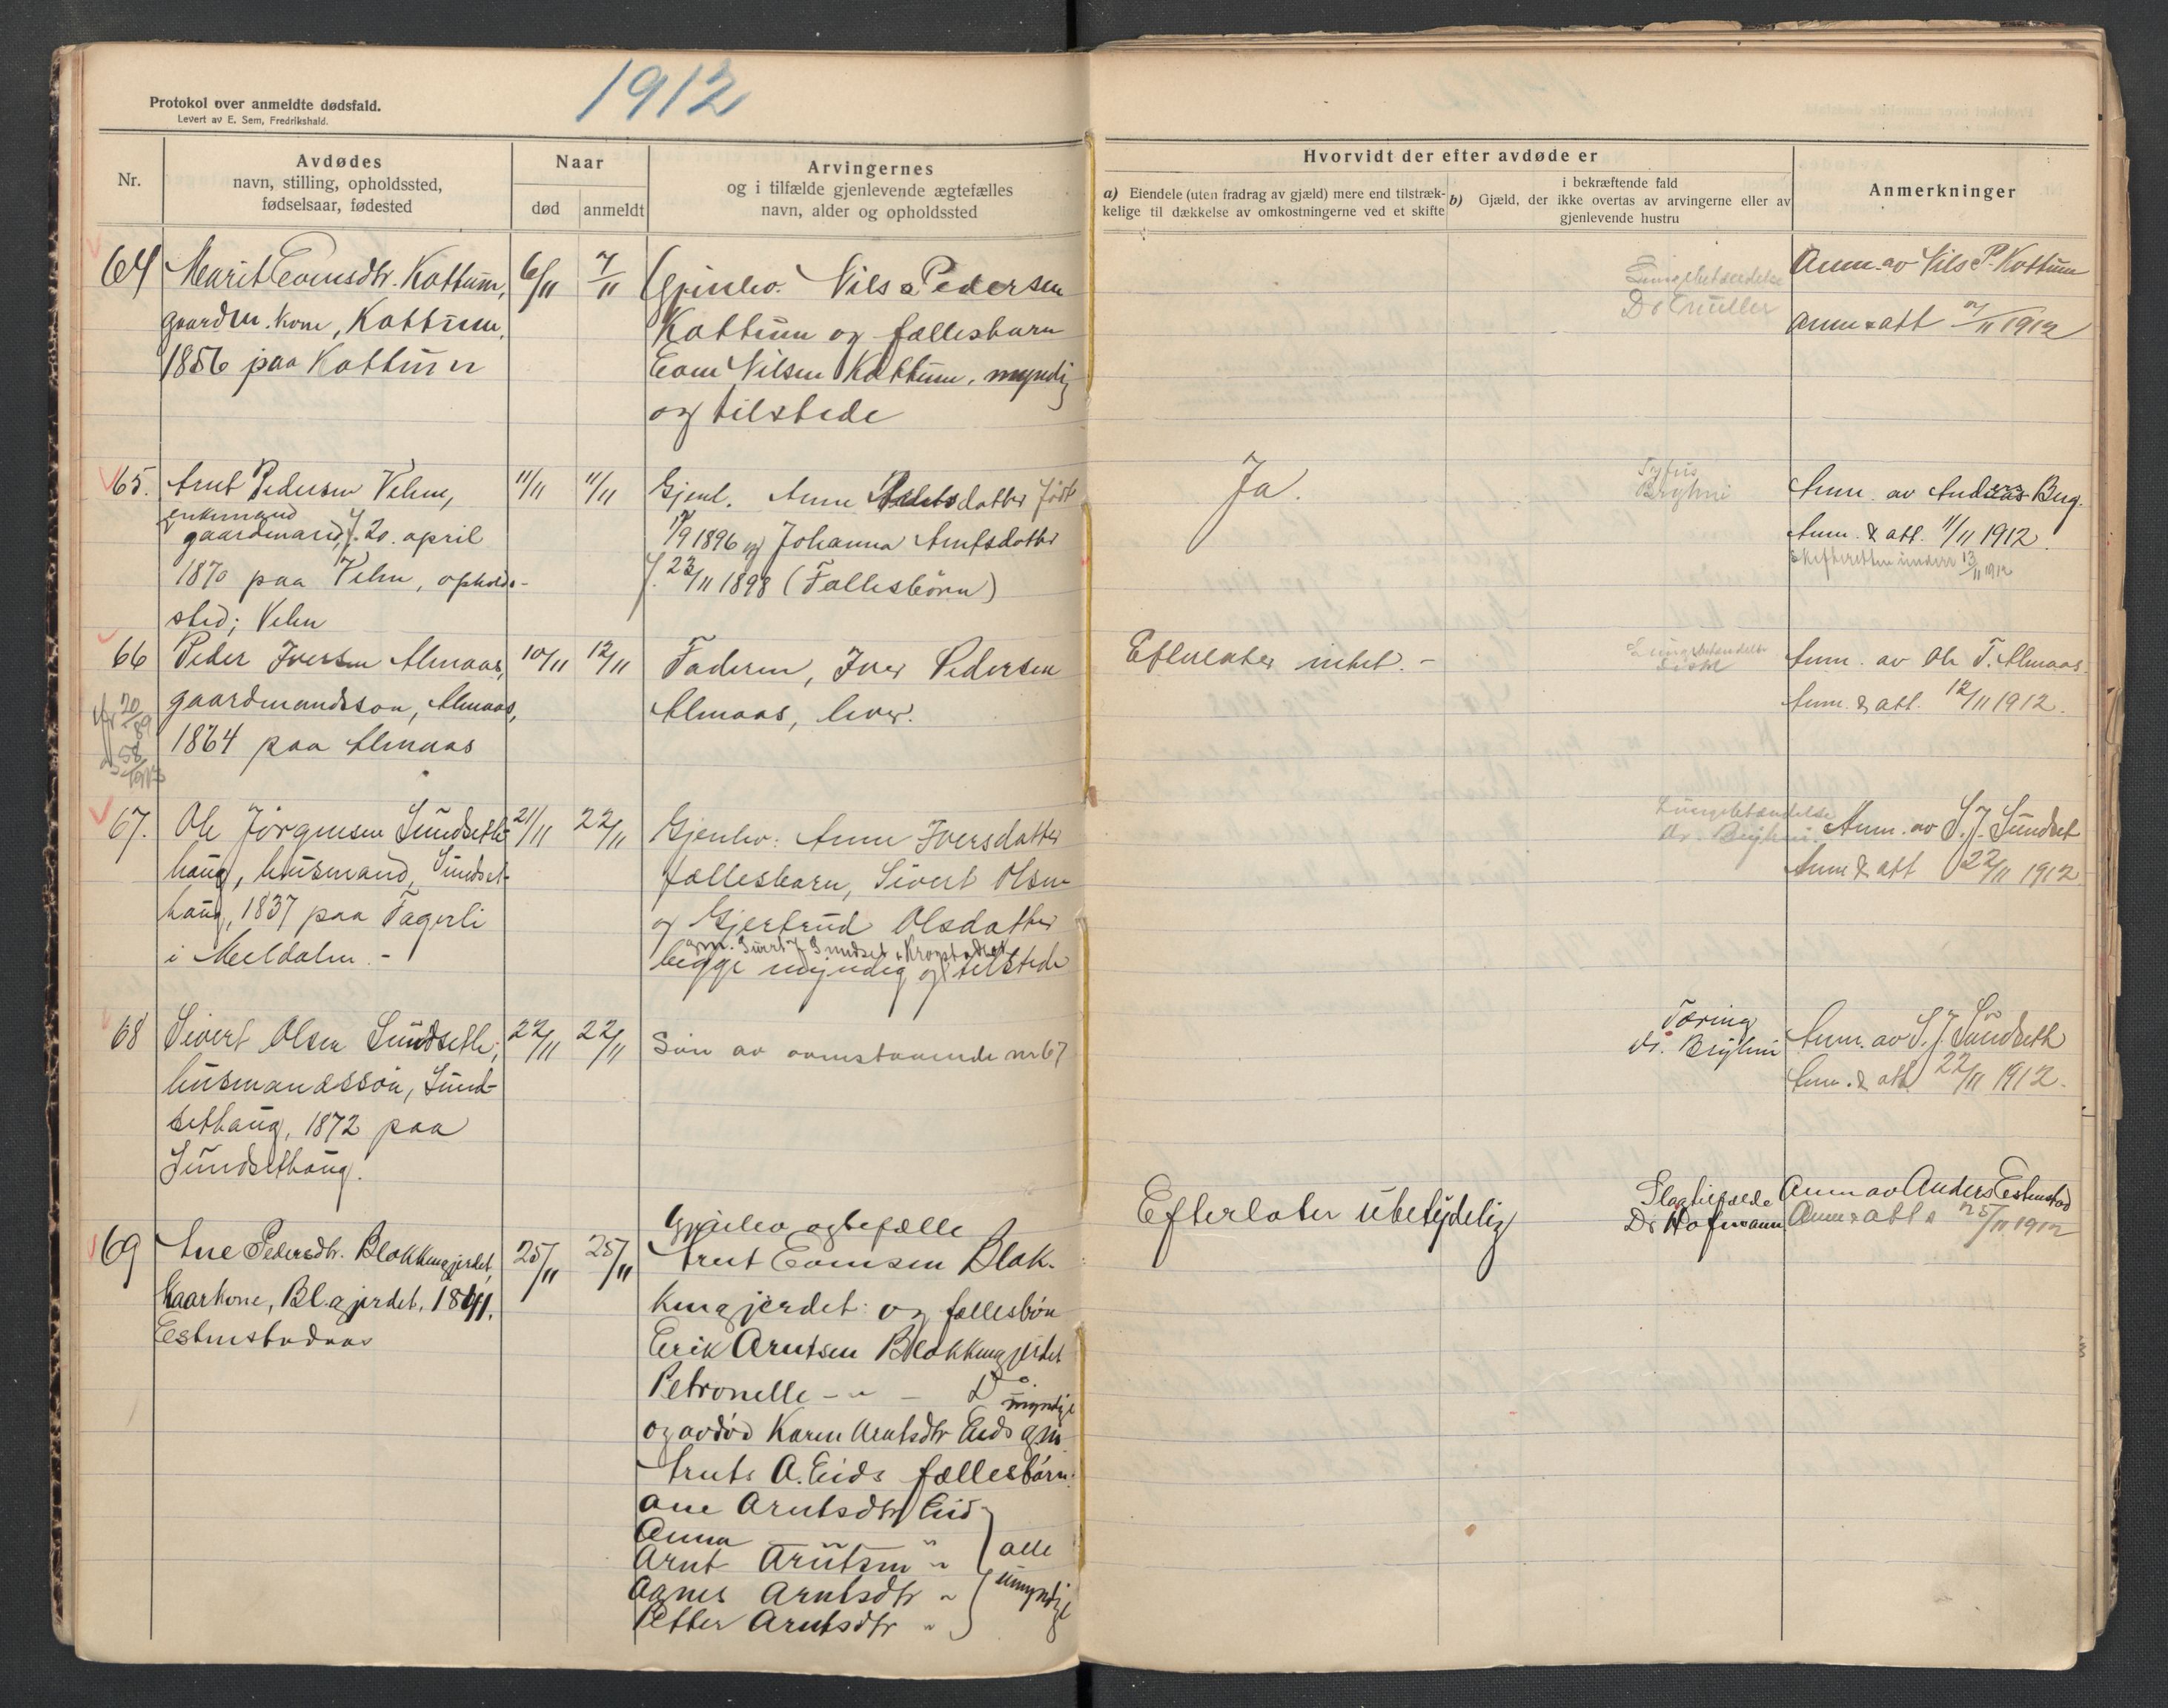 1912
Protokol over anmeldte dødsfald.
Levert av E. Sem, Fredrikshald.
Nr.
Avdødes
navn, stilling, opholdssted,
fødselsaar, fødested
Naar
død
anmeldt
Arvingernes
og i tilfælde gjenlevende ægtefælles
navn, alder og opholdssted
Hvorvidt der efter avdøde er
a) Eiendele (uten fradrag av gjæld) mere end tilstræk-
kelige til dækkelse av omkostningerne ved et skifte
i bekræftende fald
b) Gjæld, der ikke overtas av arvingerne eller av
gjenlevende hustru
Anmerkninger
64
Marit Eomsdtr. Kottum,
gaardm. kone, Kottum,
1856 paa Kottum
6/11
7/11
Gjenlev. Nils Pedersen
Kottum og fællesbarn
Eom Nilsen Kottum, myndig
og tilstede
Lungebetændelse
Dr Müller
Anm. av Nils P. Kottum
Anm & att 7/11 1912
65.
Arnt Pedersen Vehn,
enkemand
gaardmand, f. 20. april
1870 paa Vehn, opholds-
sted; Vehn
11/11
11/11
Gjenl. Anne Arntsdatter født
1896 og Johanna Arntsdatter
f. 23/11 1898 (Fællesbørn)
Ja.
Tyfus
Bryhni
Anm. av Anders Berg.
Anm. & att. 11/11 1912.
Skifteretten underr 13/11 1912
66
Peder Iversen Almaas,
gaardmandssøn, Almaas,
1864 paa Almaas
20/89
58/1913
10/11
12/11
Faderen, Iver Pedersen
Almaas, lever.
Efterlater intet. -
Lungebetændelse
Anm. av Ole T. Almaas
Anm. & att. 12/11 1912.
67.
Ole Jørgensen Sundseth-
haug, husmand, Sundset-
haug, 1837 paa Fagerli
i Meldalen. -
21/11
22/11
Gjenlev: Anne Iversdatter
fællesbarn, Sivert Olsen
og Gjertrud Olsdatter
gm. Sivert J Sundset, Krogstadhei
begge myndig og tilstede
Lungebetændelse
Dr. Bryhni
Anm. av S. J. Sundset
Anm & att 22/11 1912
68
Sivert Olsen Sundseth,
husmandssøn, Sund-
sethaug, 1872 paa
Sundsethaug.
22/11
22/11
Søn av ovenstaaende nr 67
Tæring
Dr. Bryhni
Anm. av S. J. Sundseth
Anm. & att 22/11 1912.
69
Ane Pedersdtr. Blokkengjerdet,
Kaarkone, Bl.gjerdet, 1841.
Estenstadaas
25/11
25/11
Gjenlev egtefælle
Arnt Eomsen Blok-
kengjerdet: og fællesbørn
Erik Arntsen Blokkengjerdet
Petronelle - " - Do myndige
og avdød Karen Arntsdtr Eids gm
Arnts A. Eids fællesbørn:
Ane Arntsdtr Eid
Anna - "
Arnt Arntsen "
Agnes Arntsdtr "
Petter Arntsdtr "
alle
umyndige
Efterlater ubetydelig
Slagtilfælde
Dr Hofmann
Anm av Anders Estenstad
Anm & att 25/11 1912